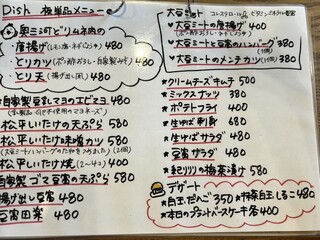 Dish 枚単品メニュー
奥三河どり
唐揚げ 480
とりカツ 480
とり天 480
自家製豆乳マヨのエビマヨ 480
松平しいたけの天ぷら 580
松平しいたけ味噌カツ 580
松平しいたけ焼 480
自家製ゴマ豆腐の天ぷら 580
揚げ出し豆腐 480
豆腐田楽 480
大豆ミート
大豆ミートの唐揚げ 400
大豆ミートと豆腐のハンバーグ 380
大豆ミートのメンチカツ 380
クリームチーズキムチ 500
ミックスナッツ 380
ポテトフライ 400
生ゆば刺身 680
生ゆばサラダ 480
豆腐サラダ 480
梅茶漬け 580
デザート
白玉だんご 350 抹茶白玉しるこ 480
本日のプラントベースケーキ各 400